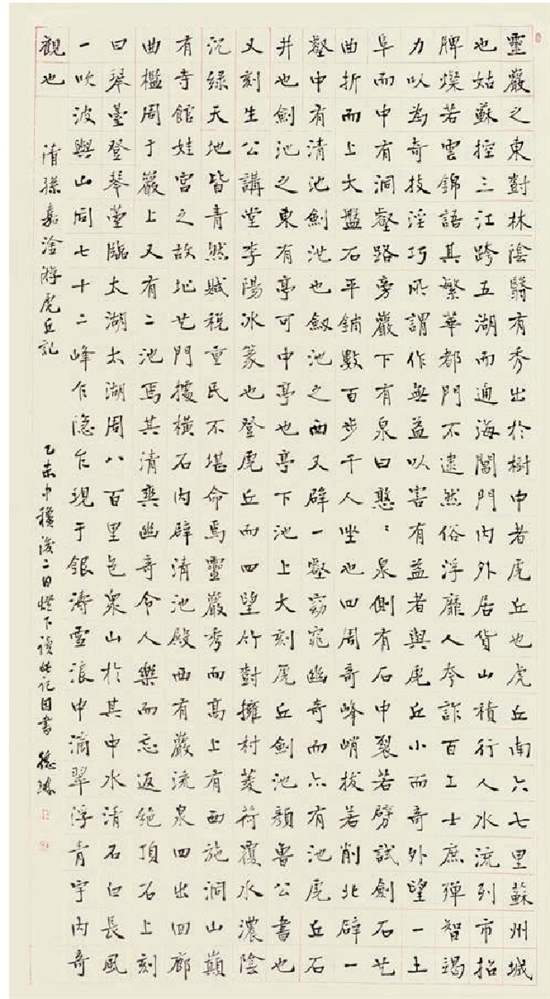 靈巖之東對林陰翳有秀出於樹中者虎丘也虎丘南六七里蘇州城
也姑蘇控三江跨五湖而通海閶門內外居貨山積行人水流列市招
牌燦若雲錦語其繁華都門不逮然俗浮靡人夸詐百工士庶殫智竭
力以為奇技淫巧所謂作無益以害有益者與虎丘小而奇外望一土
阜而中有洞壑路旁巖下有泉曰憨〻泉側有石中裂若劈試劍石也
曲折而上大盤石平鋪數百步千人坐也四周奇峰峭拔若削北辟一
壑中有清池劍池也劍池之西又辟一壑窈窕幽奇而亦有池虎丘石
井也劍池之東有亭可中亭也亭下池上大刻虎丘劍池顏魯公書也
又刻生公講堂李陽冰篆也登虎丘而四望竹對擁村菱荷覆水濃陰
沉綠天地皆青然賦稅重民不堪命焉靈巖秀而高上有西施洞山巔
有寺館娃宮之故址也門據橫石內辟清池殿西有巖流泉四出回廊
曲檻周于巖上又有二池焉其清爽幽奇令人樂而忘返絕頂石上刻
曰琴臺登琴臺臨太湖太湖周八百里包眾山於其中水清石白長風
一吹波與山同七十二峰乍隱乍現于銀濤雪浪中滴翠浮青宇內奇
觀也 清孫嘉淦游虎丘記 乙未中穐後二日燈下讀此記因書 德